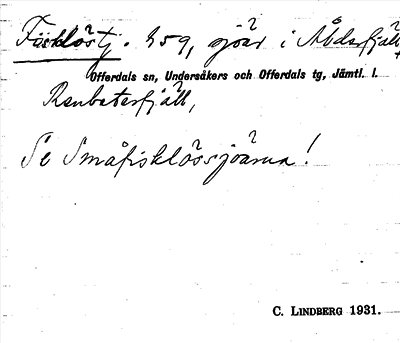 Fisklöstj. 459, sjöar i Åbdsfjäll +
Offerdals sn, Undersåkers och Offerdals tg, Jämtl. l.
Renbetesfjäll,
Se Småfisklössjöarna!
C. LINDBERG 1931.